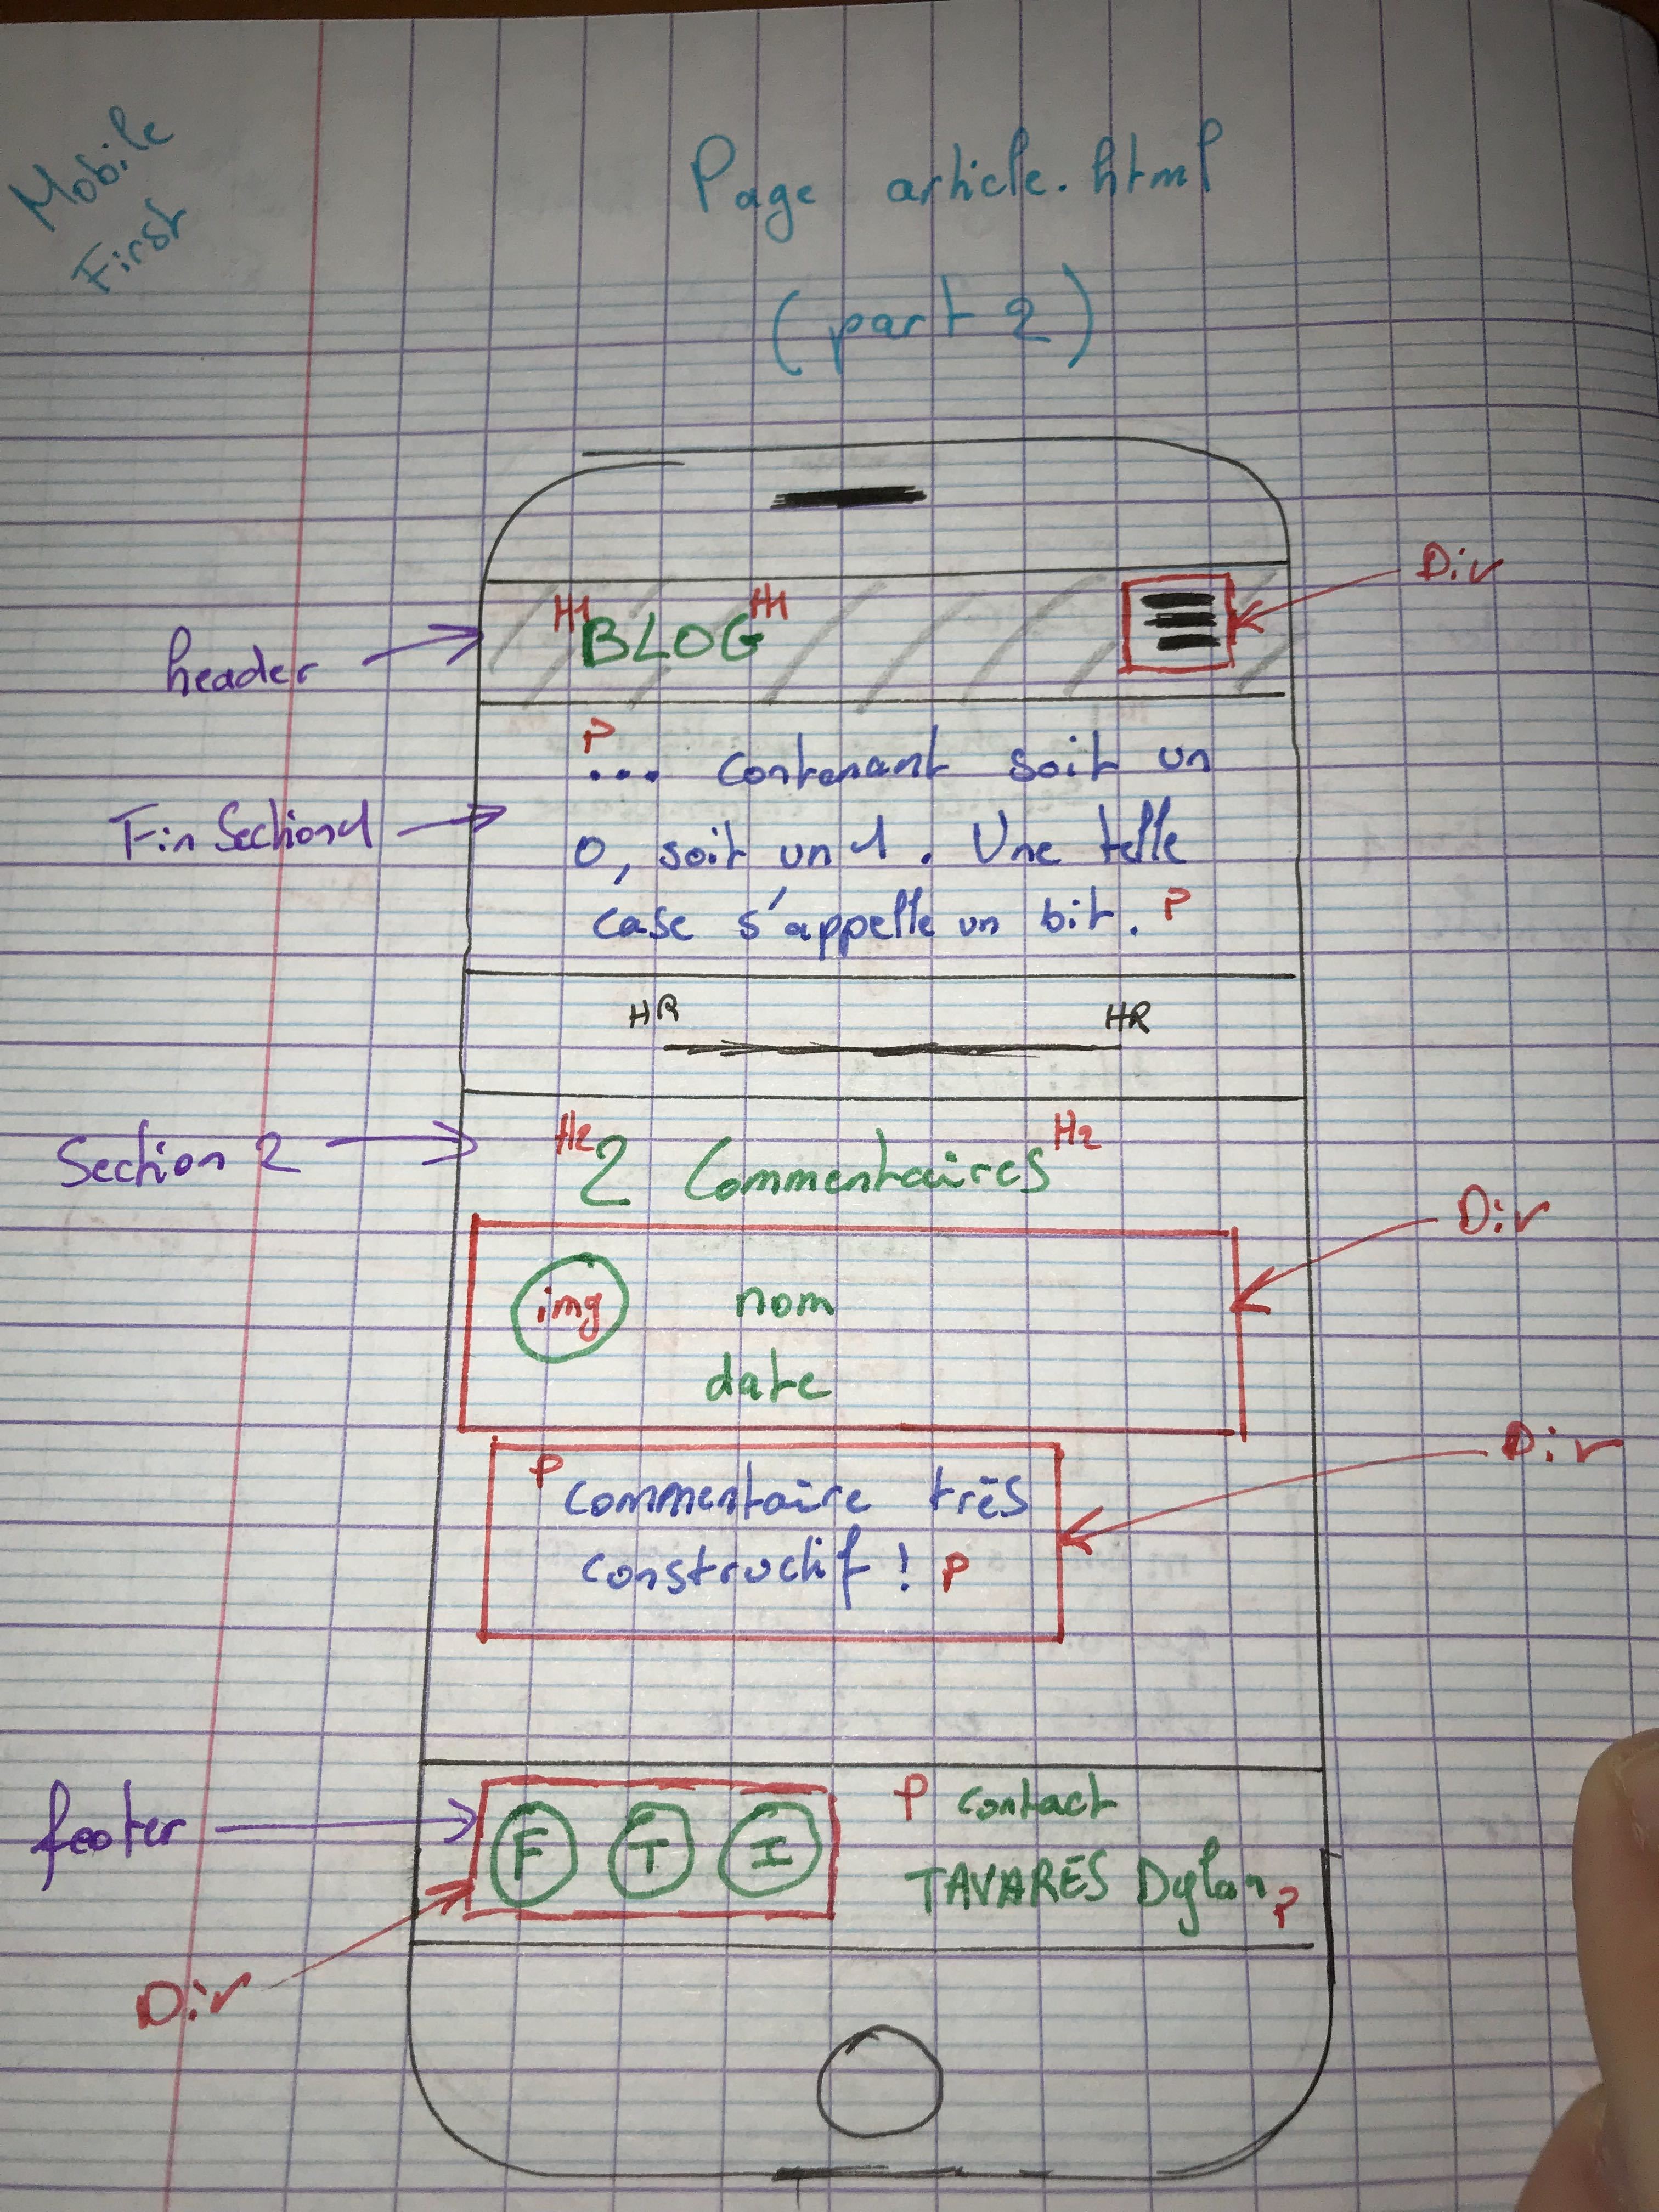 Mobile
First
Page article.html
(part 2)
Div
header
H1 BLOG H1
P
... contenant soit un
Fin Section 1
0, soit un 1. Une telle
case s'appelle un bit. P
HR HR
Section 2
H2 2 Commentaires H2
Div
img nom
date
Div
P Commentaire très
constructif ! P
footer
F T I
P contact
TAVARES Dylan P
Div